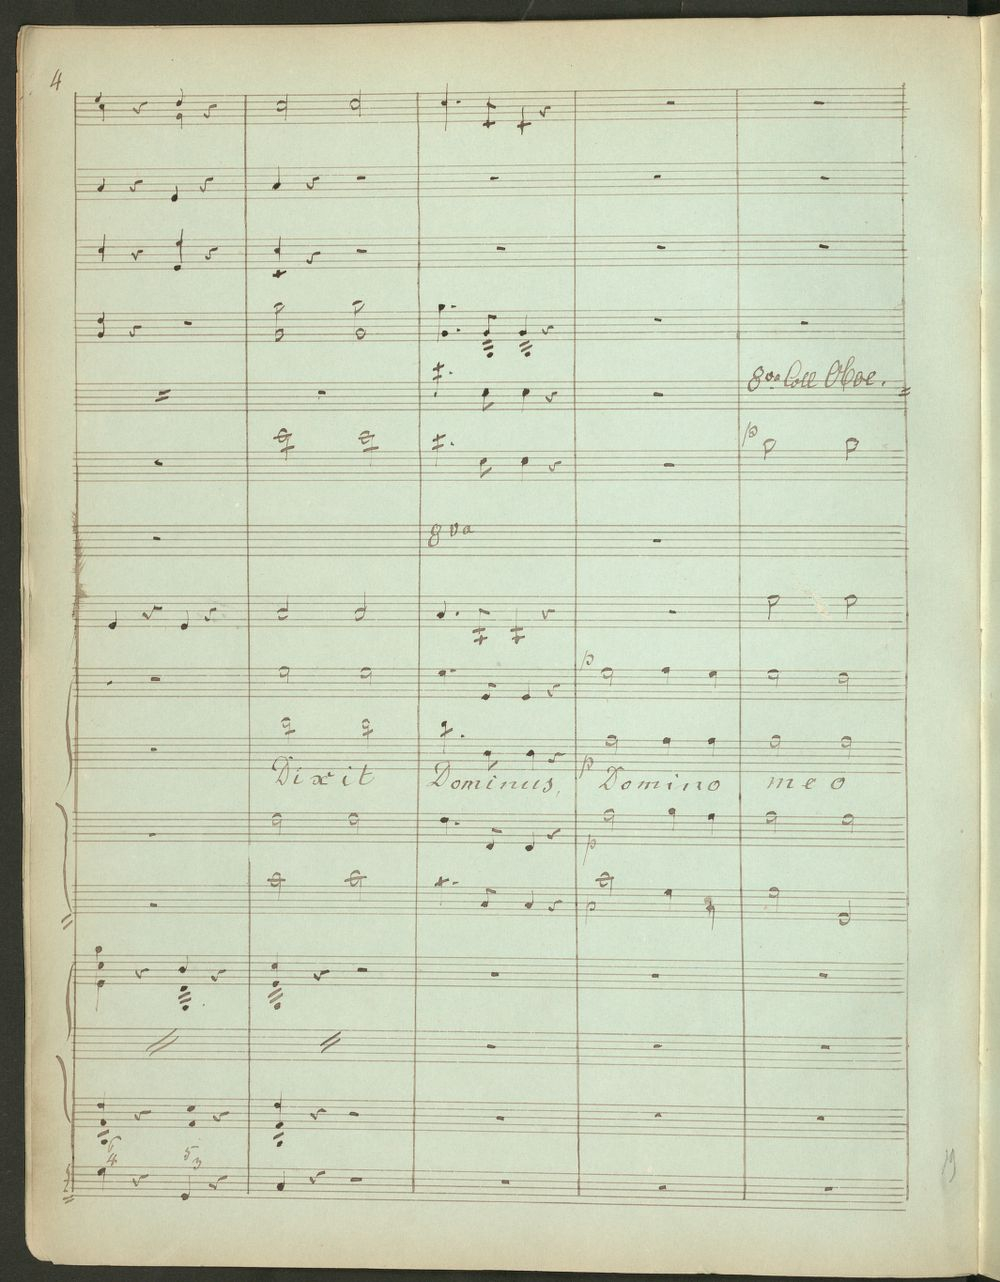 4
8va Coll Oboe.
p
8va
p
Dixit Dominus, Domino meo
p
p
p
6 5
4 3
19